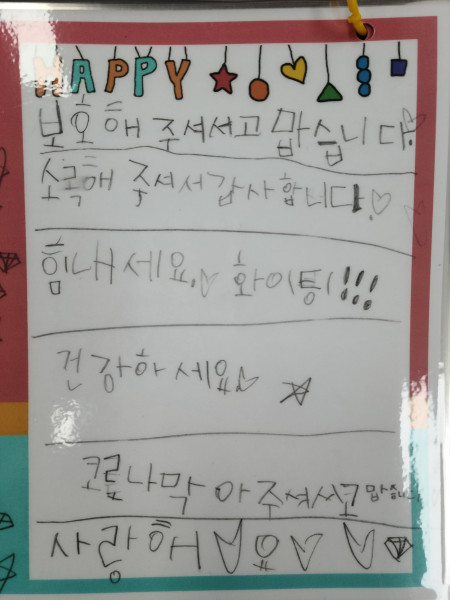 HAPPY
보호해 주셔서고 맙습니다.
소록해 죽셔서감사합니다.♡
힘내세요.♡ 화이팅!!!
건강하세요♡ ☆
코롬나막 아주셔써고 맙습니
사랑해♡요♡♡